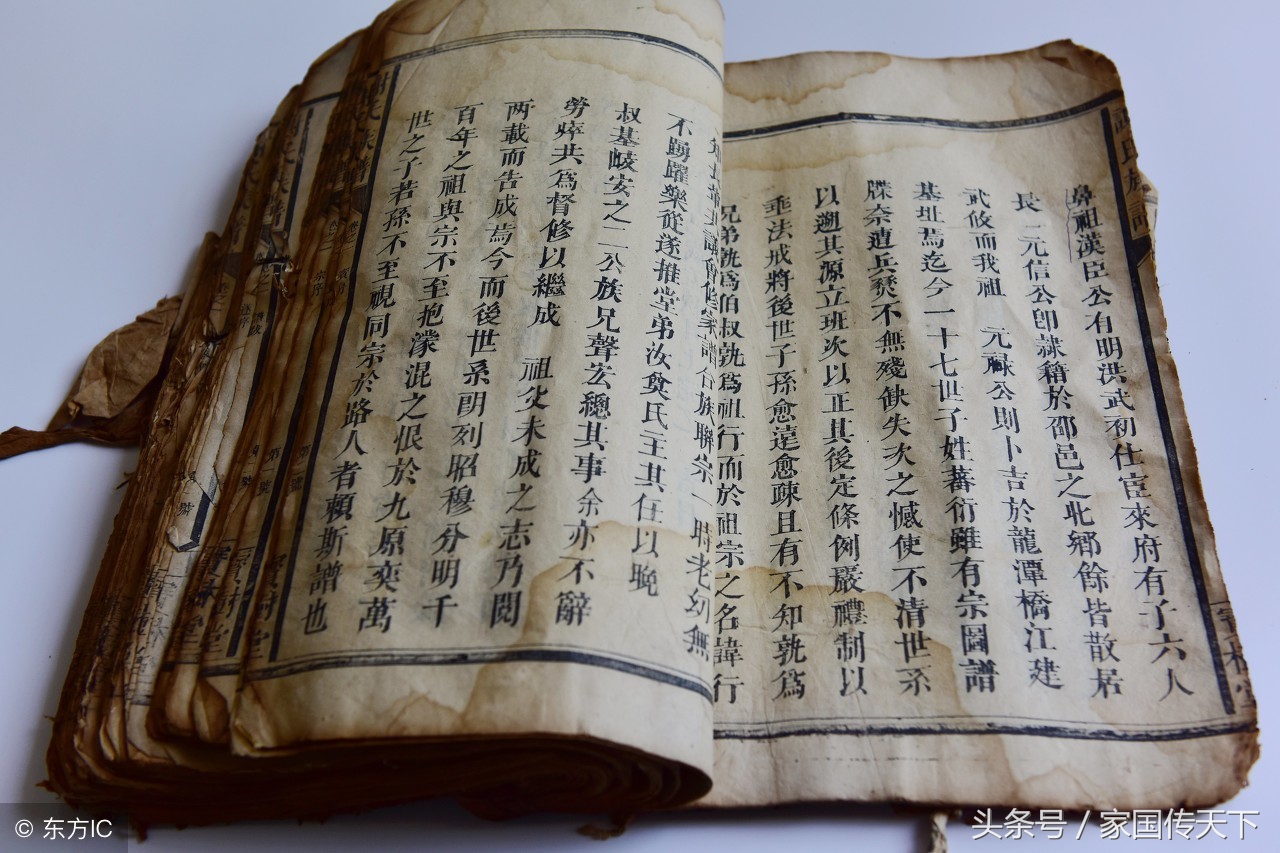 鼻祖漢臣公有明洪武初仕宦來府有子六人
長 元信公即隷籍於邵邑之北鄉餘皆散居
武攸而我祖 元祿公則卜吉於龍潭橋江建
基址焉迄今一十七世子姓蕃衍雖有宗圖譜
牒奈遭兵燹不無殘缺失次之憾使不清世系
以遡其源立班次以正其後定條例嚴禮制以
垂法戒將後世子孫愈遠愈疎且有不知孰爲
兄弟孰爲伯叔孰爲祖行而於祖宗之名諱行
合族聯宗一時老幼無
不踴躍樂從遂推堂弟汝奠氏主其任以晩
叔基岐安之二公族兄聲宏總其事余亦不辭
勞瘁共爲督修以繼成 祖父未成之志乃閱
两載而告成焉今而後世系明列昭穆分明千
百年之祖與宗不至抱濛混之恨於九原奕萬
世之子若孫不至視同宗於路人者賴斯譜也
© 东方IC
头条号 / 家国传天下